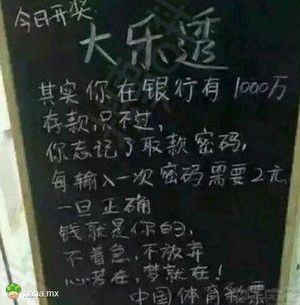 今日开奖
大乐透
其实你在银行有1000万
存款,只不过,
你忘记了取款密码,
每输入一次密码需要2元,
一旦正确
钱就是你的,
不着急,不放弃
心若在,梦就在!
中国体育彩票